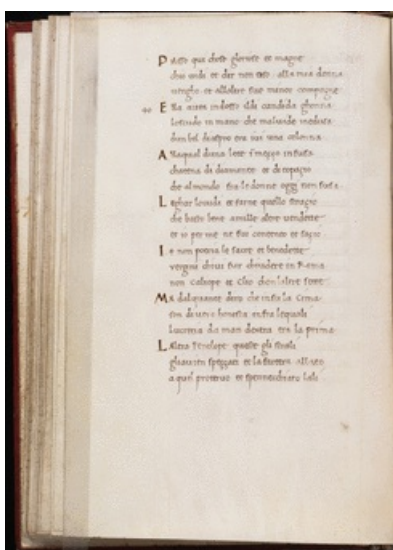 Passo qui chose gloriose et magne
chio vidi et dir non oso alla mia donna
vengho et allaltre sue minor compagne
Ella avea indosso il di candida ghonna
loscudo in mano che mal vide medusa
dun bel diaspro era ivi una colonna
Allaqual duna lete i mezzo infusa
chatena di diamante et di topazio
che almondo fra le donne oggi non susa
Leghar lo vidi et farne quello strazio
che basto bene a mille altre vendette
et io per me ne fui contento et sazio
Io non poria le sacre et benedette
vergini chivi fur chiudere in Rima
non Caliope et Clio chon laltre sette
Ma dalquante diro che insu la Cima
son di vera honesta infra lequali
Lucretia da man dextra era la prima
Laltra Penelope queste gli strali
gliavien spezzati et la faretra allato
a quel protervo et spennechiato lali